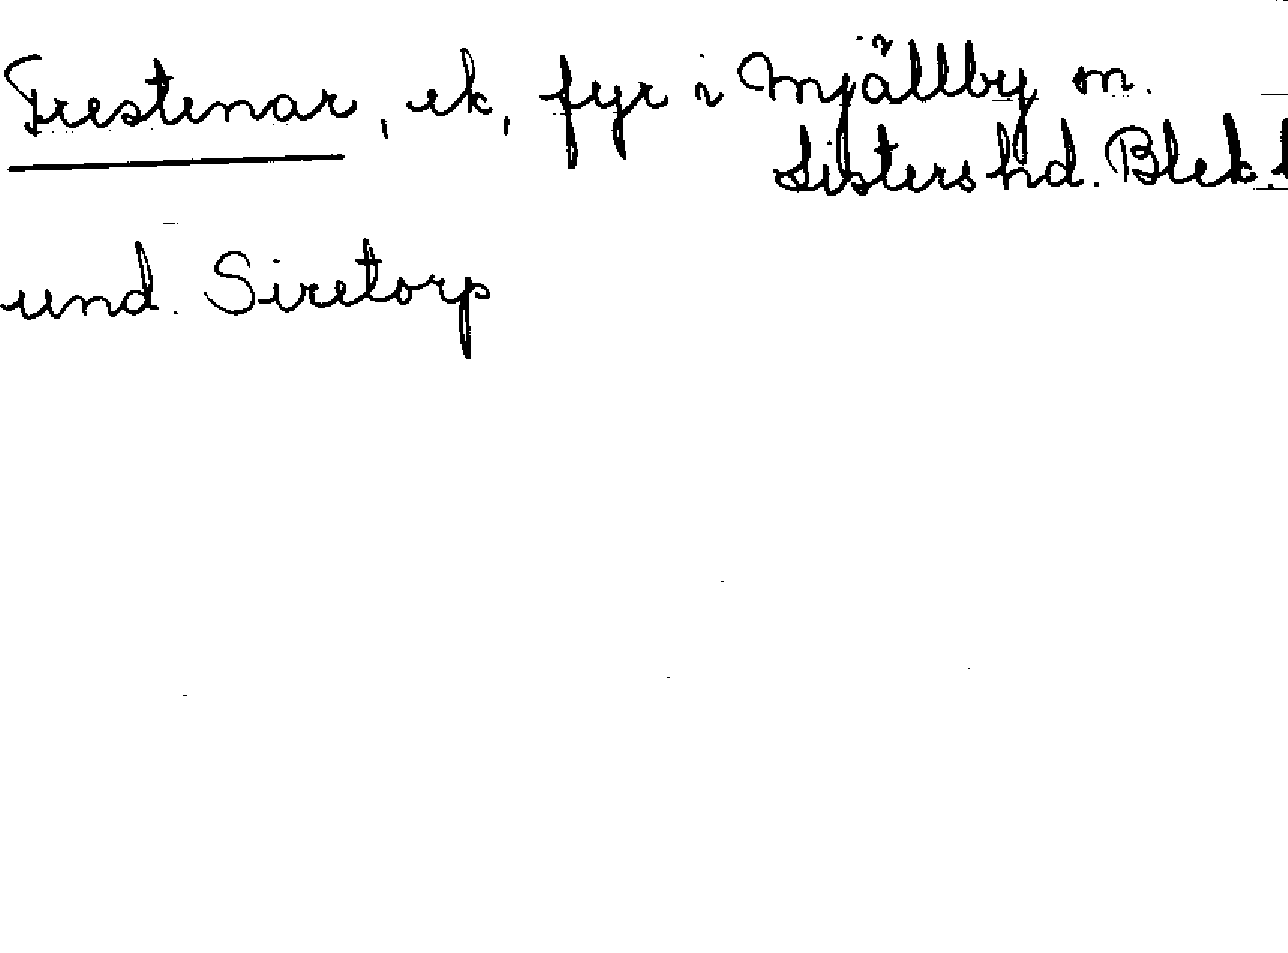 Trestenar, ek, fyr i Mjällby sn.
Listers hd. Blek.
und. Siretorp